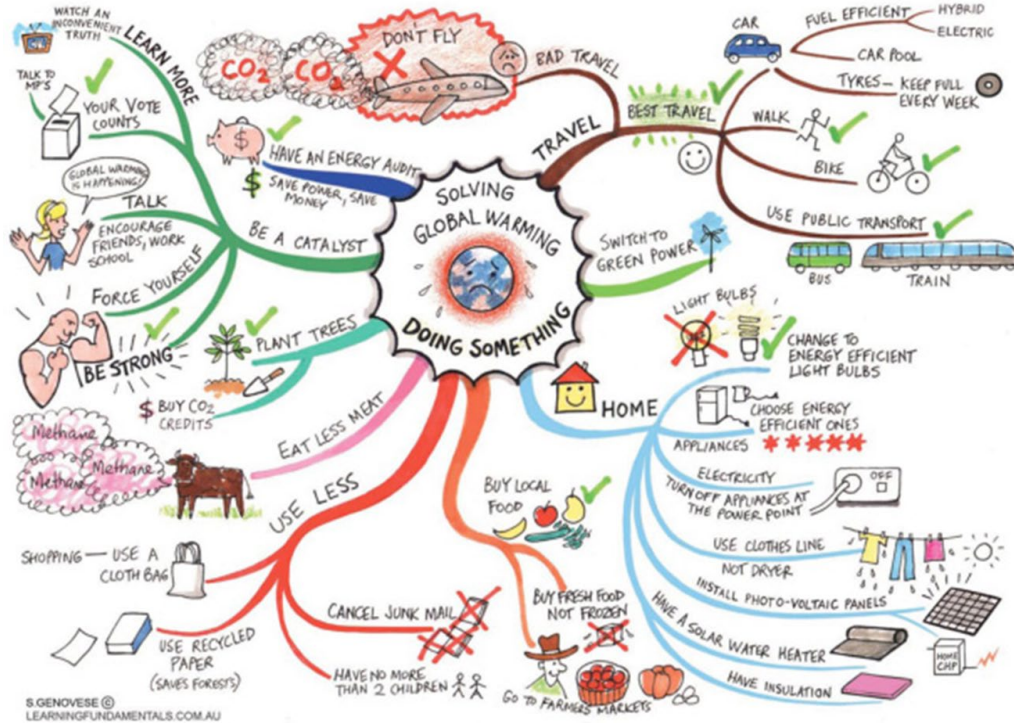 SOLVING
GLOBAL WARMING
DOING SOMETHING
TRAVEL
BAD TRAVEL
DON'T FLY
CO2
CO2
BEST TRAVEL
CAR
FUEL EFFICIENT
HYBRID
ELECTRIC
CAR POOL
TYRES — KEEP FULL
EVERY WEEK
WALK
BIKE
USE PUBLIC TRANSPORT
BUS
TRAIN
SWITCH TO
GREEN POWER
HOME
LIGHT BULBS
CHANGE TO
ENERGY EFFICIENT
LIGHT BULBS
CHOOSE ENERGY
EFFICIENT ONES
APPLIANCES
ELECTRICITY
TURN OFF APPLIANCES AT
THE POWER POINT
OFF
USE CLOTHES LINE
NOT DRYER
INSTALL PHOTO-VOLTAIC PANELS
HOME
CHP
HAVE A SOLAR WATER HEATER
HAVE INSULATION
BUY LOCAL
FOOD
BUY FRESH FOOD
NOT FROZEN
GO TO FARMERS MARKETS
USE LESS
SHOPPING — USE A
CLOTH BAG
USE RECYCLED
PAPER
(SAVES FORESTS)
CANCEL JUNK MAIL
HAVE NO MORE
THAN 2 CHILDREN
EAT LESS MEAT
Methane
Methane
Methane
PLANT TREES
$ BUY CO2
CREDITS
BE A CATALYST
LEARN MORE
WATCH AN
INCONVENIENT
TRUTH
TALK TO
MP'S
YOUR VOTE
COUNTS
GLOBAL WARMING
IS HAPPENING!
TALK
ENCOURAGE
FRIENDS, WORK
SCHOOL
FORCE YOURSELF
BE STRONG
HAVE AN ENERGY AUDIT
SAVE POWER, SAVE
MONEY
$
$
S.GENOVESE ©
LEARNINGFUNDAMENTALS.COM.AU